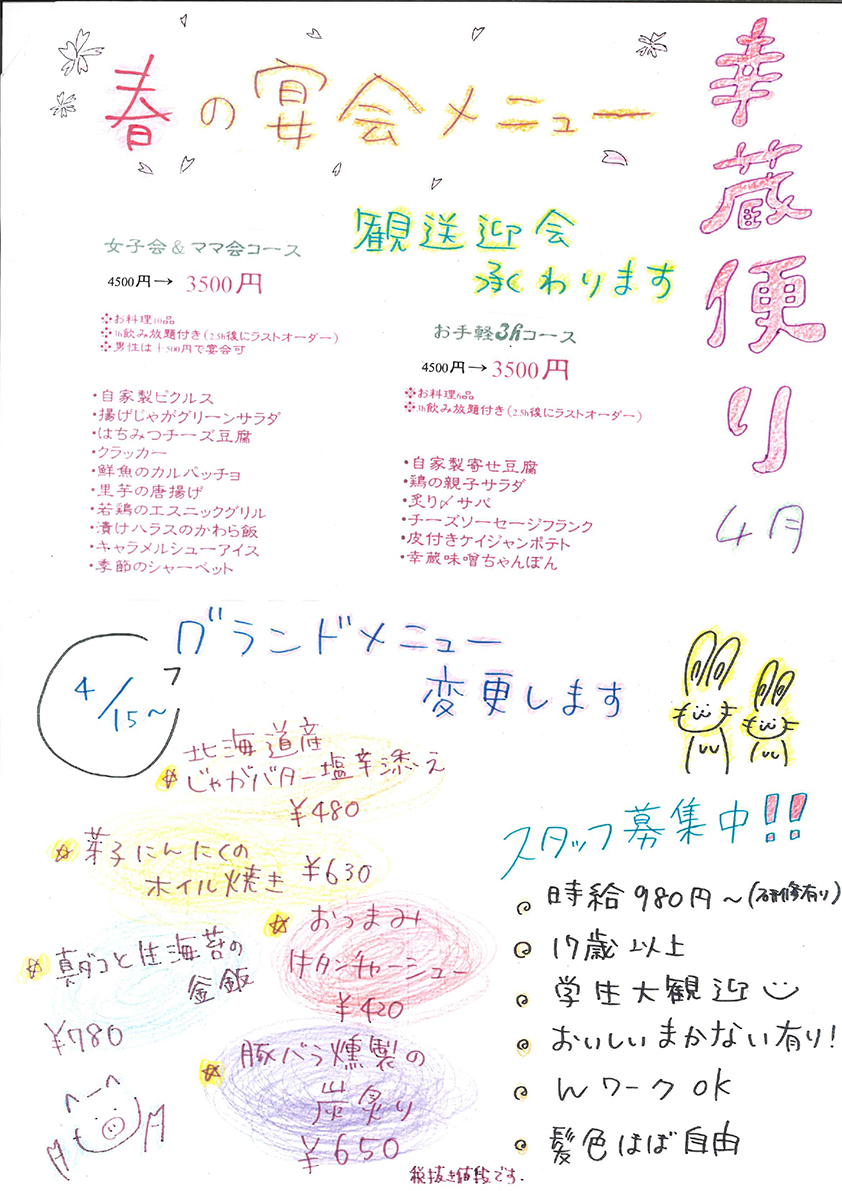 幸蔵便り
4月
春の宴会メニュー
観送迎会
承わります
女子会＆ママ会コース
4500円→ 3500円
❖お料理10品
❖3h飲み放題付き（2.5h後にラストオーダー）
❖男性は＋500円で宴会可
・自家製ピクルス
・揚げじゃがグリーンサラダ
・はちみつチーズ豆腐
・クラッカー
・鮮魚のカルパッチョ
・里芋の唐揚げ
・若鶏のエスニックグリル
・漬けハラスのかわら飯
・キャラメルシューアイス
・季節のシャーベット
お手軽3hコース
4500円→3500円
❖お料理6品
❖3h飲み放題付き（2.5h後にラストオーダー）
・自家製寄せ豆腐
・鶏の親子サラダ
・炙り〆サバ
・チーズソーセージフランク
・皮付きケイジャンポテト
・幸蔵味噌ちゃんぽん
グランドメニュー
変更します
4/15〜
北海道産
じゃがバター塩辛添え
¥480
芽子にんにくの
ホイル焼き ¥630
おつまみ
牛タンチャーシュー
¥420
真ダコと生海苔の
釜飯
¥780
豚バラ燻製の
炭炙り
¥650
税抜き値段です.
スタッフ募集中!!
時給980円〜(研修有り)
17歳以上
学生大観迎
おいしいまかない有り!
Wワークok
髪色ほぼ自由